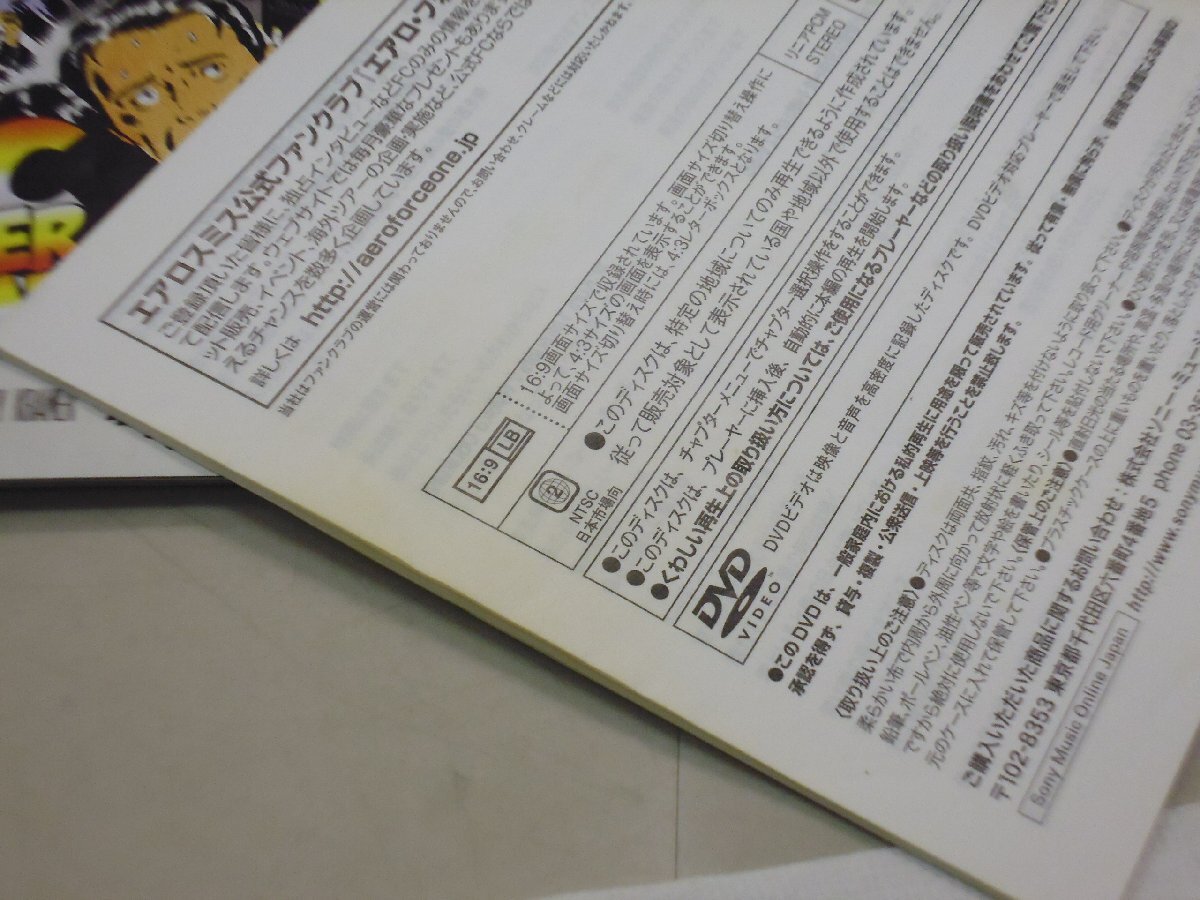 エアロスミス公式ファンクラブ「エアロ・フォ
ご登録頂いた皆様に、独占インタビューなどFCのみの情報を
で配信します。ウェブサイトでは毎月豪華なプレゼントもあります
ット販売、イベント、海外ツアーの企画実施など、公式FCならでは
えるチャンスを数多く企画しています。
詳しくは http://aeroforceone.jp
当社はファンクラブの運営には関わっておりませんので、お問い合わせ、クレームなどには対応いたしかねます。
16:9 LB
16:9画面サイズで収録されています。画面サイズ切り替え操作に
よって、4:3サイズの画面を表示することができます。
画面サイズ切り替え時には、4:3レターボックスとなります。
リニアPCM
STEREO
2
NTSC
日本市場向
●このディスクは、特定の地域についてのみ再生できるように作成されています。
従って販売対象として表示されている国や地域以外で使用することはできません。
●このディスクは、チャプターメニューでチャプター選択操作をすることができます。
●このディスクは、プレーヤーに挿入後、自動的に本編の再生を開始します。
●くわしい再生上の取り扱い方については、ご使用になるプレーヤーなどの取り扱い説明書をあわせてご覧下さい
DVD
VIDEO
DVDビデオは映像と音声を高密度に記録したディスクです。DVDビデオ対応のプレーヤーで再生して下さい。
●このDVDは、一般家庭内における私的再生に用途を限って販売されています。従って有償・無償に拘らず、権利者の書面による事前の
承認を得ず、貸与・複製・公衆送信・上映等を行うことを禁止致します。
〈取り扱い上のご注意〉●ディスクは両面共、指紋、汚れ、キズ等を付けないように取り扱って下さい。
柔らかい布で内周から外周に向かって放射状に軽くふき取って下さい。レコード用クリーナー
鉛筆、ボールペン、油性ペン等で文字や絵を書いたり、シール等を貼付しないで下さい。
ですから絶対に使用しないで下さい。〈保管上のご注意〉●直射日光の当たる場所や、高温・多湿の場所
元のケースに入れて保管して下さい。●プラスチックケースの上に重いものを置いたり、落としたり
ご購入いただいた商品に関するお問い合わせ：株式会社ソニー・ミュー
〒102-8353 東京都千代田区六番町4番地5 phone 03-
Sony Music Online Japan
http://www.sonym
ER